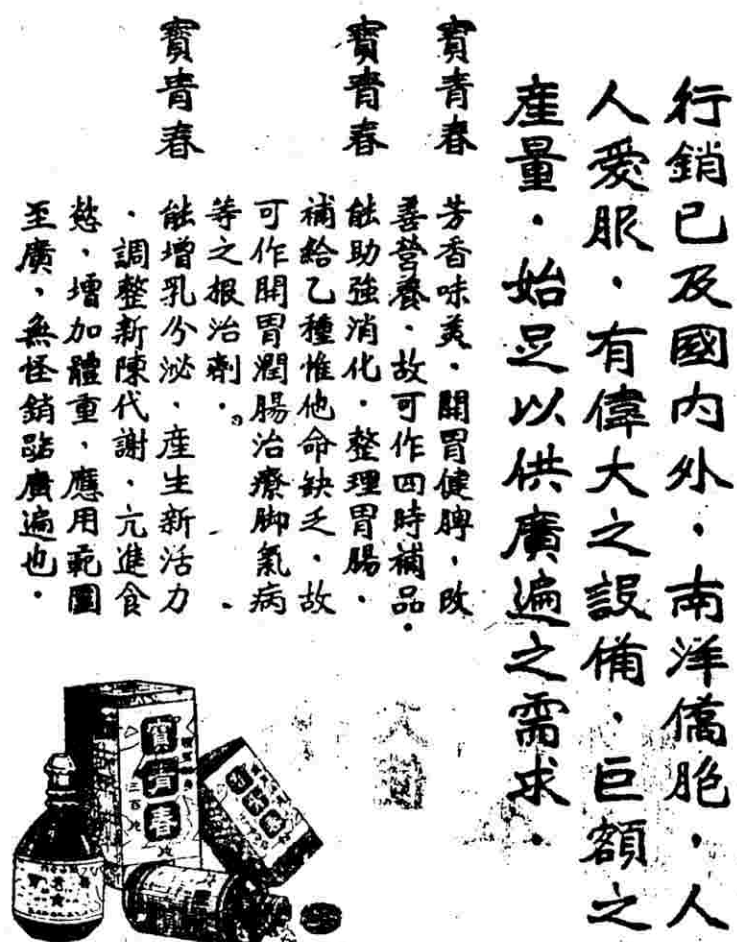 行銷已及國內外．南洋僑胞，人
人愛服．有偉大之設備．巨額之
產量．始足以供廣遍之需求．
寶青春
芳香味美．開胃健脾，改
善營養．故可作四時補品．
寶青春
能助強消化．整理胃腸．
補給乙種惟他命缺乏．故
可作開胃潤腸治療脚氣病
等之根治劑．
寶青春
能增乳分泌．產生新活力
．調整新陳代謝．亢進食
慾．增加體重．應用範圍
至廣，無怪銷路廣遍也．
寶青春
三百丸